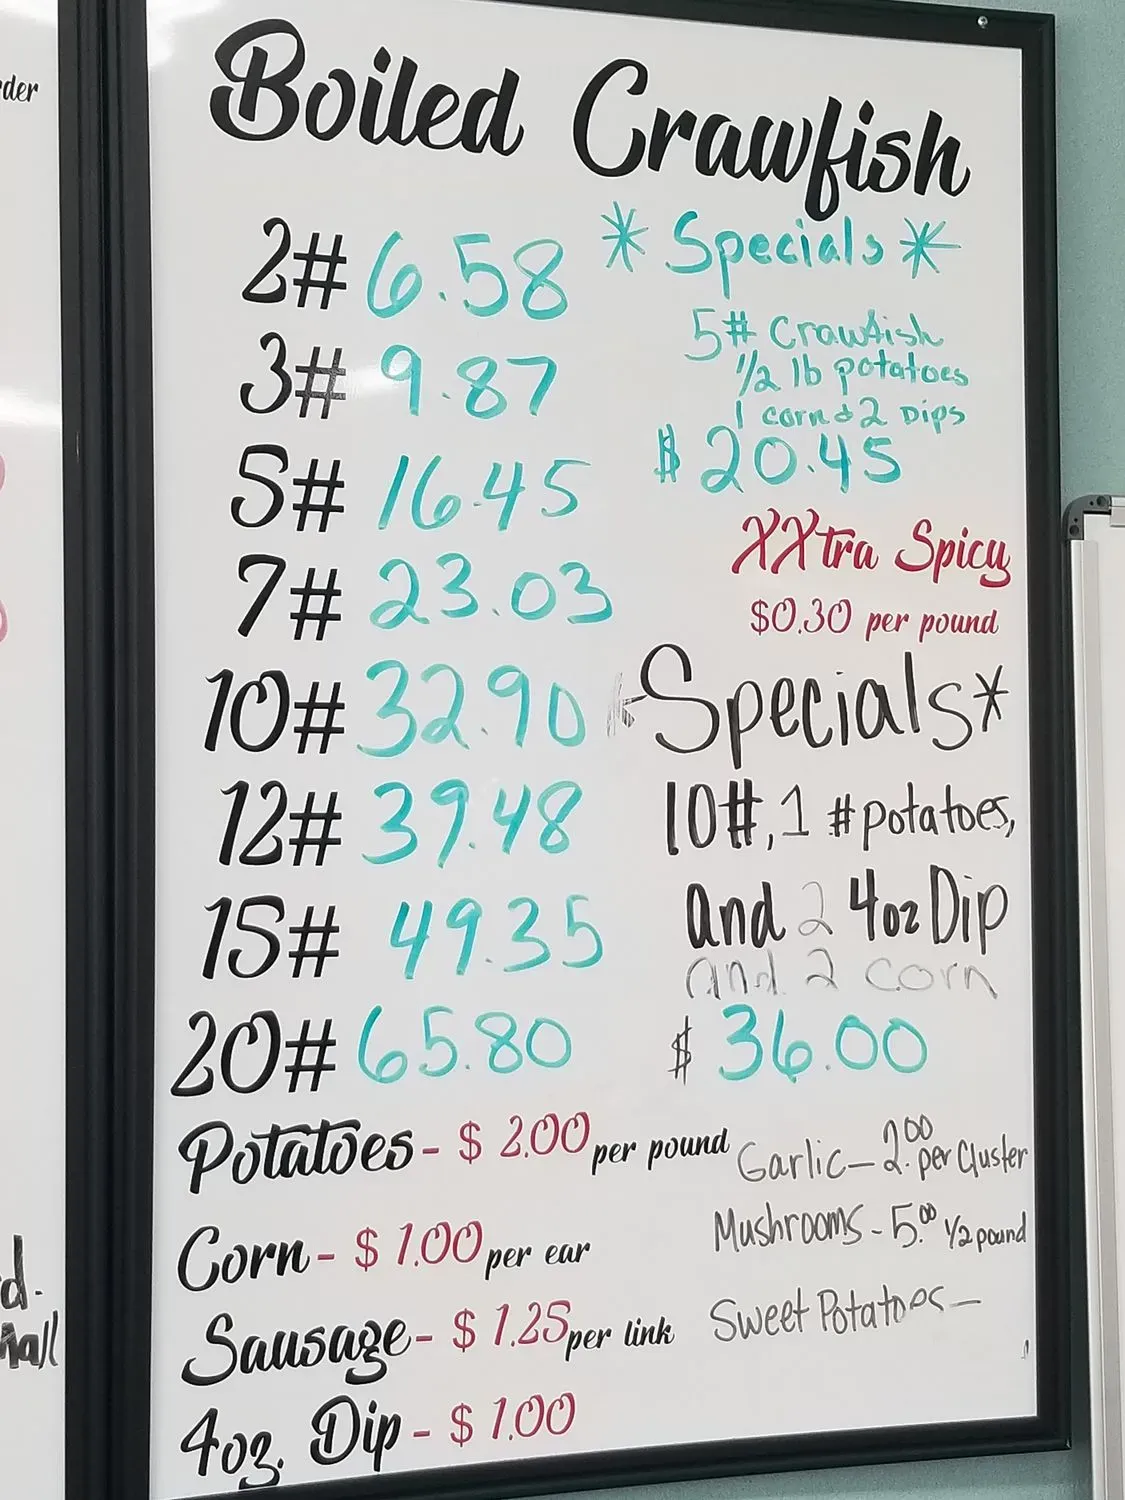 Boiled Crawfish
2# 6.58
3# 9.87
5# 16.45
7# 23.03
10# 32.90
12# 39.48
15# 49.35
20# 65.80
* Specials *
5# Crawfish
1/2 lb potatoes
1 corn & 2 Dips
$ 20.45
XXtra Spicy
$0.30 per pound
*Specials*
10#, 1 #potatoes,
and 2 4oz Dip
and 2 corn
$ 36.00
Potatoes- $ 2.00 per pound
Corn- $ 1.00 per ear
Sausage- $ 1.25 per link
4oz. Dip- $ 1.00
Garlic- 2.00 per Cluster
Mushrooms - 5.00 1/2 pound
Sweet Potatoes-